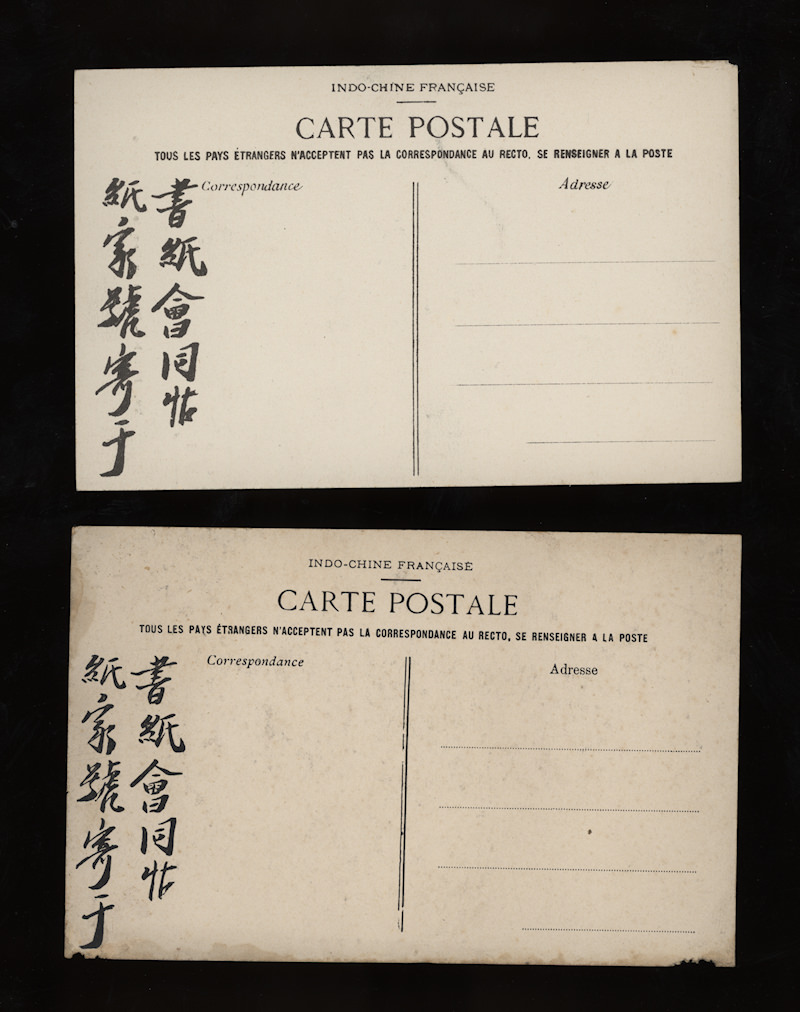 INDO-CHINE FRANÇAISE
CARTE POSTALE
TOUS LES PAYS ÉTRANGERS N'ACCEPTENT PAS LA CORRESPONDANCE AU RECTO, SE RENSEIGNER A LA POSTE
Correspondance
Adresse
書紙會同帖
紙家號寄于
INDO-CHINE FRANÇAISE
CARTE POSTALE
TOUS LES PAYS ÉTRANGERS N'ACCEPTENT PAS LA CORRESPONDANCE AU RECTO, SE RENSEIGNER A LA POSTE
Correspondance
Adresse
書紙會同帖
紙家號寄于